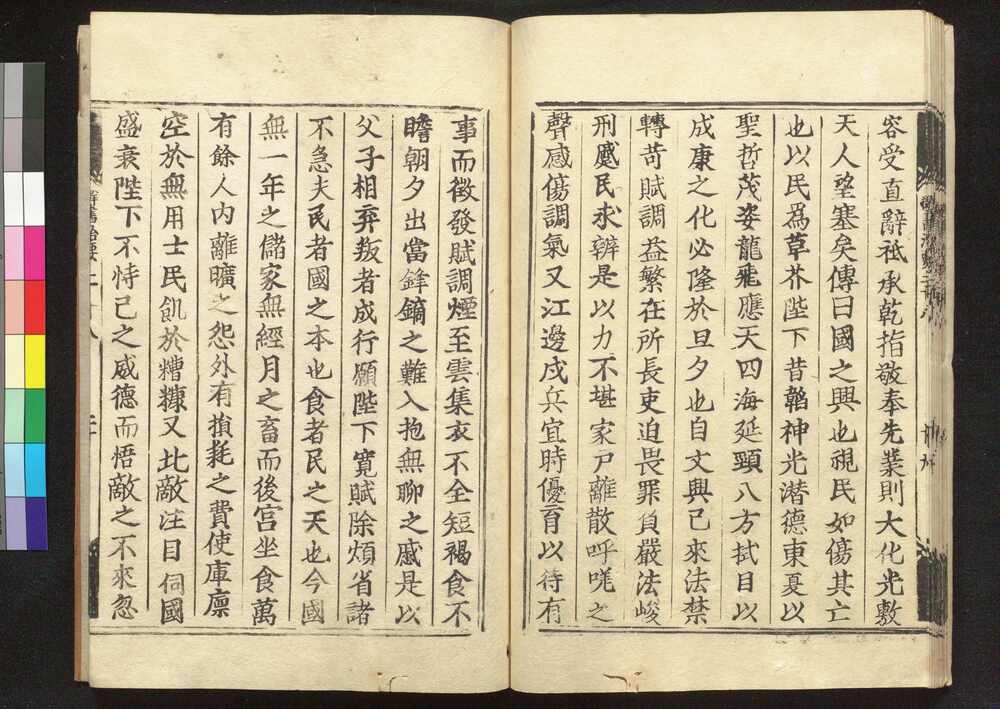 容受直辭祗承乾指敬奉先業則大化光敷
天人望塞矣傳曰國之興也視民如傷其亡
也以民爲草芥陛下昔韜神光潛德東夏以
聖哲茂姿龍飛應天四海延頸八方拭目以
成康之化必隆於旦夕也自文興已來法禁
轉苛賦調益繁在所長吏迫畏罪負嚴法峻
刑蹙民求辦是以力不堪家戶離散呼嗟之
聲感傷調氣又江邊戍兵宜時優育以待有
事而徵發賦調煙至雲集衣不全短褐食不
瞻朝夕出當鋒鏑之難入抱無聊之慼是以
父子相弃叛者成行願陛下寬賦除煩省諸
不急夫民者國之本也食者民之天也今國
無一年之儲家無經月之畜而後宮坐食萬
有餘人內離曠之怨外有損耗之費使庫廩
空於無用士民飢於糟糠又北敵注目伺國
盛衰陛下不恃己之威德而悟敵之不來忽